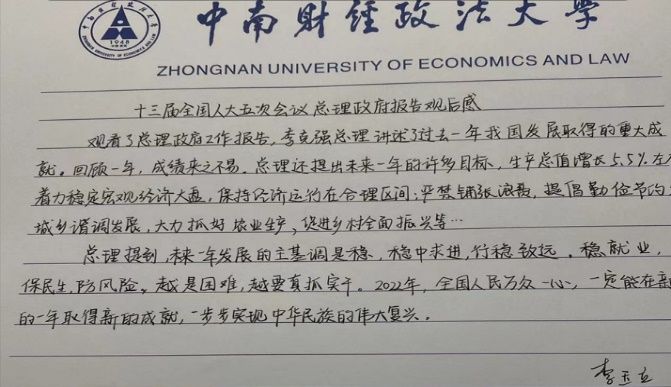 中南财经政法大学
1948
ZHONGNAN UNIVERSITY OF ECONOMICS AND LAW
十三届全国人大五次会议总理政府报告观后感
观看了总理政府工作报告，李克强总理讲述了过去一年我国发展取得的重大成
就。回顾一年，成绩来之不易。总理还提出未来一年的许多目标，生产总值增长5.5%左右
着力稳定宏观经济大盘，保持经济运行在合理区间；严禁铺张浪费，提倡勤俭节约
城乡协调发展，大力抓好农业生产，促进乡村全面振兴等…
总理提到，未来一年发展的主基调是稳，稳中求进，行稳致远。稳就业，
保民生，防风险。越是困难，越要真抓实干。2022年，全国人民万众一心，一定能在新
的一年取得新的成就，一步步实现中华民族的伟大复兴。
李玉立